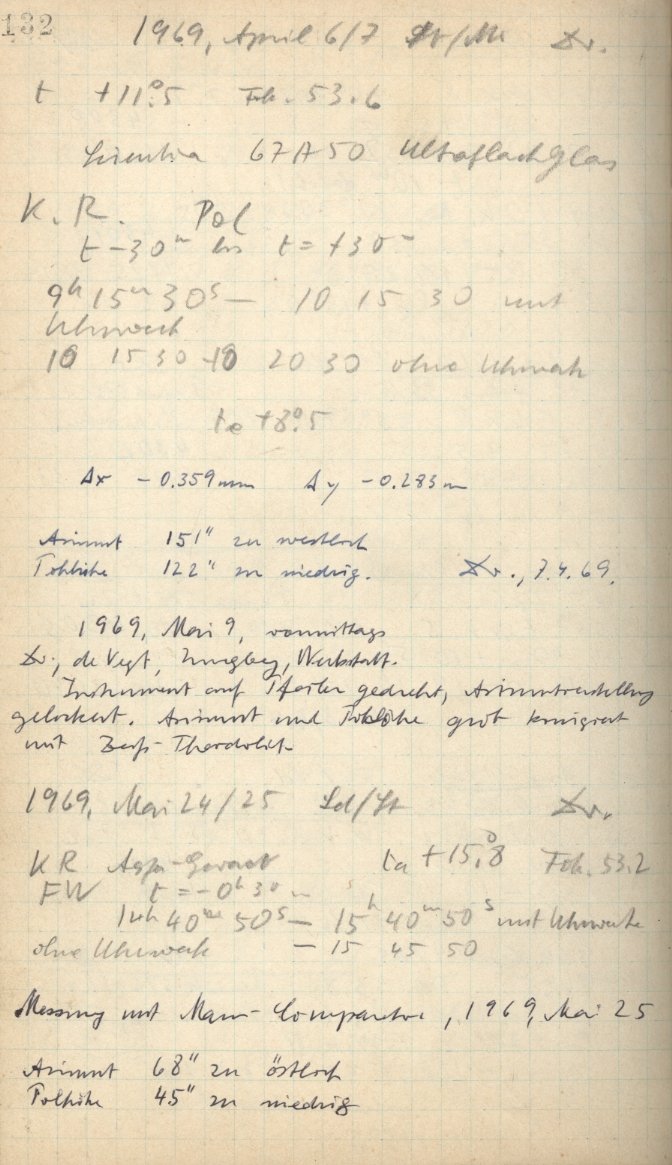 132
1969, April 6/7 Dr.
t +11°.5 Fok. 53.6
Scientia 67A50 Ultraflachglas
K. R. Pol
t -30m bis t = +30m
9h 15m 30s — 10 15 30 mit
Uhrwerk
10 15 30 - 10 20 30 ohne Uhrwerk
te +8°.5
Δx -0.359mm Δy -0.283m
Azimut 151" zu westlich
Polhöhe 122" zu niedrig. Dr., 7.4.69.
1969, Mai 9, vormittags
Dr., de Vegt, Werkstatt.
Instrument auf Pfeiler gedreht, Azimutverstellung
gelockert. Azimut und Polhöhe grob korrigiert
mit Zeiß-Theodolit
1969, Mai 24/25 Dr.
KR Agfa-Gevaert ta +15°.8 Fok. 53.2
FW t = -0h 30m
14h 40m 50s — 15h 40m 50s mit Uhrwerk
ohne Uhrwerk — 15 45 50
Messung mit Mann-Comparator, 1969, Mai 25
Azimut 68" zu östlich
Polhöhe 45" zu niedrig